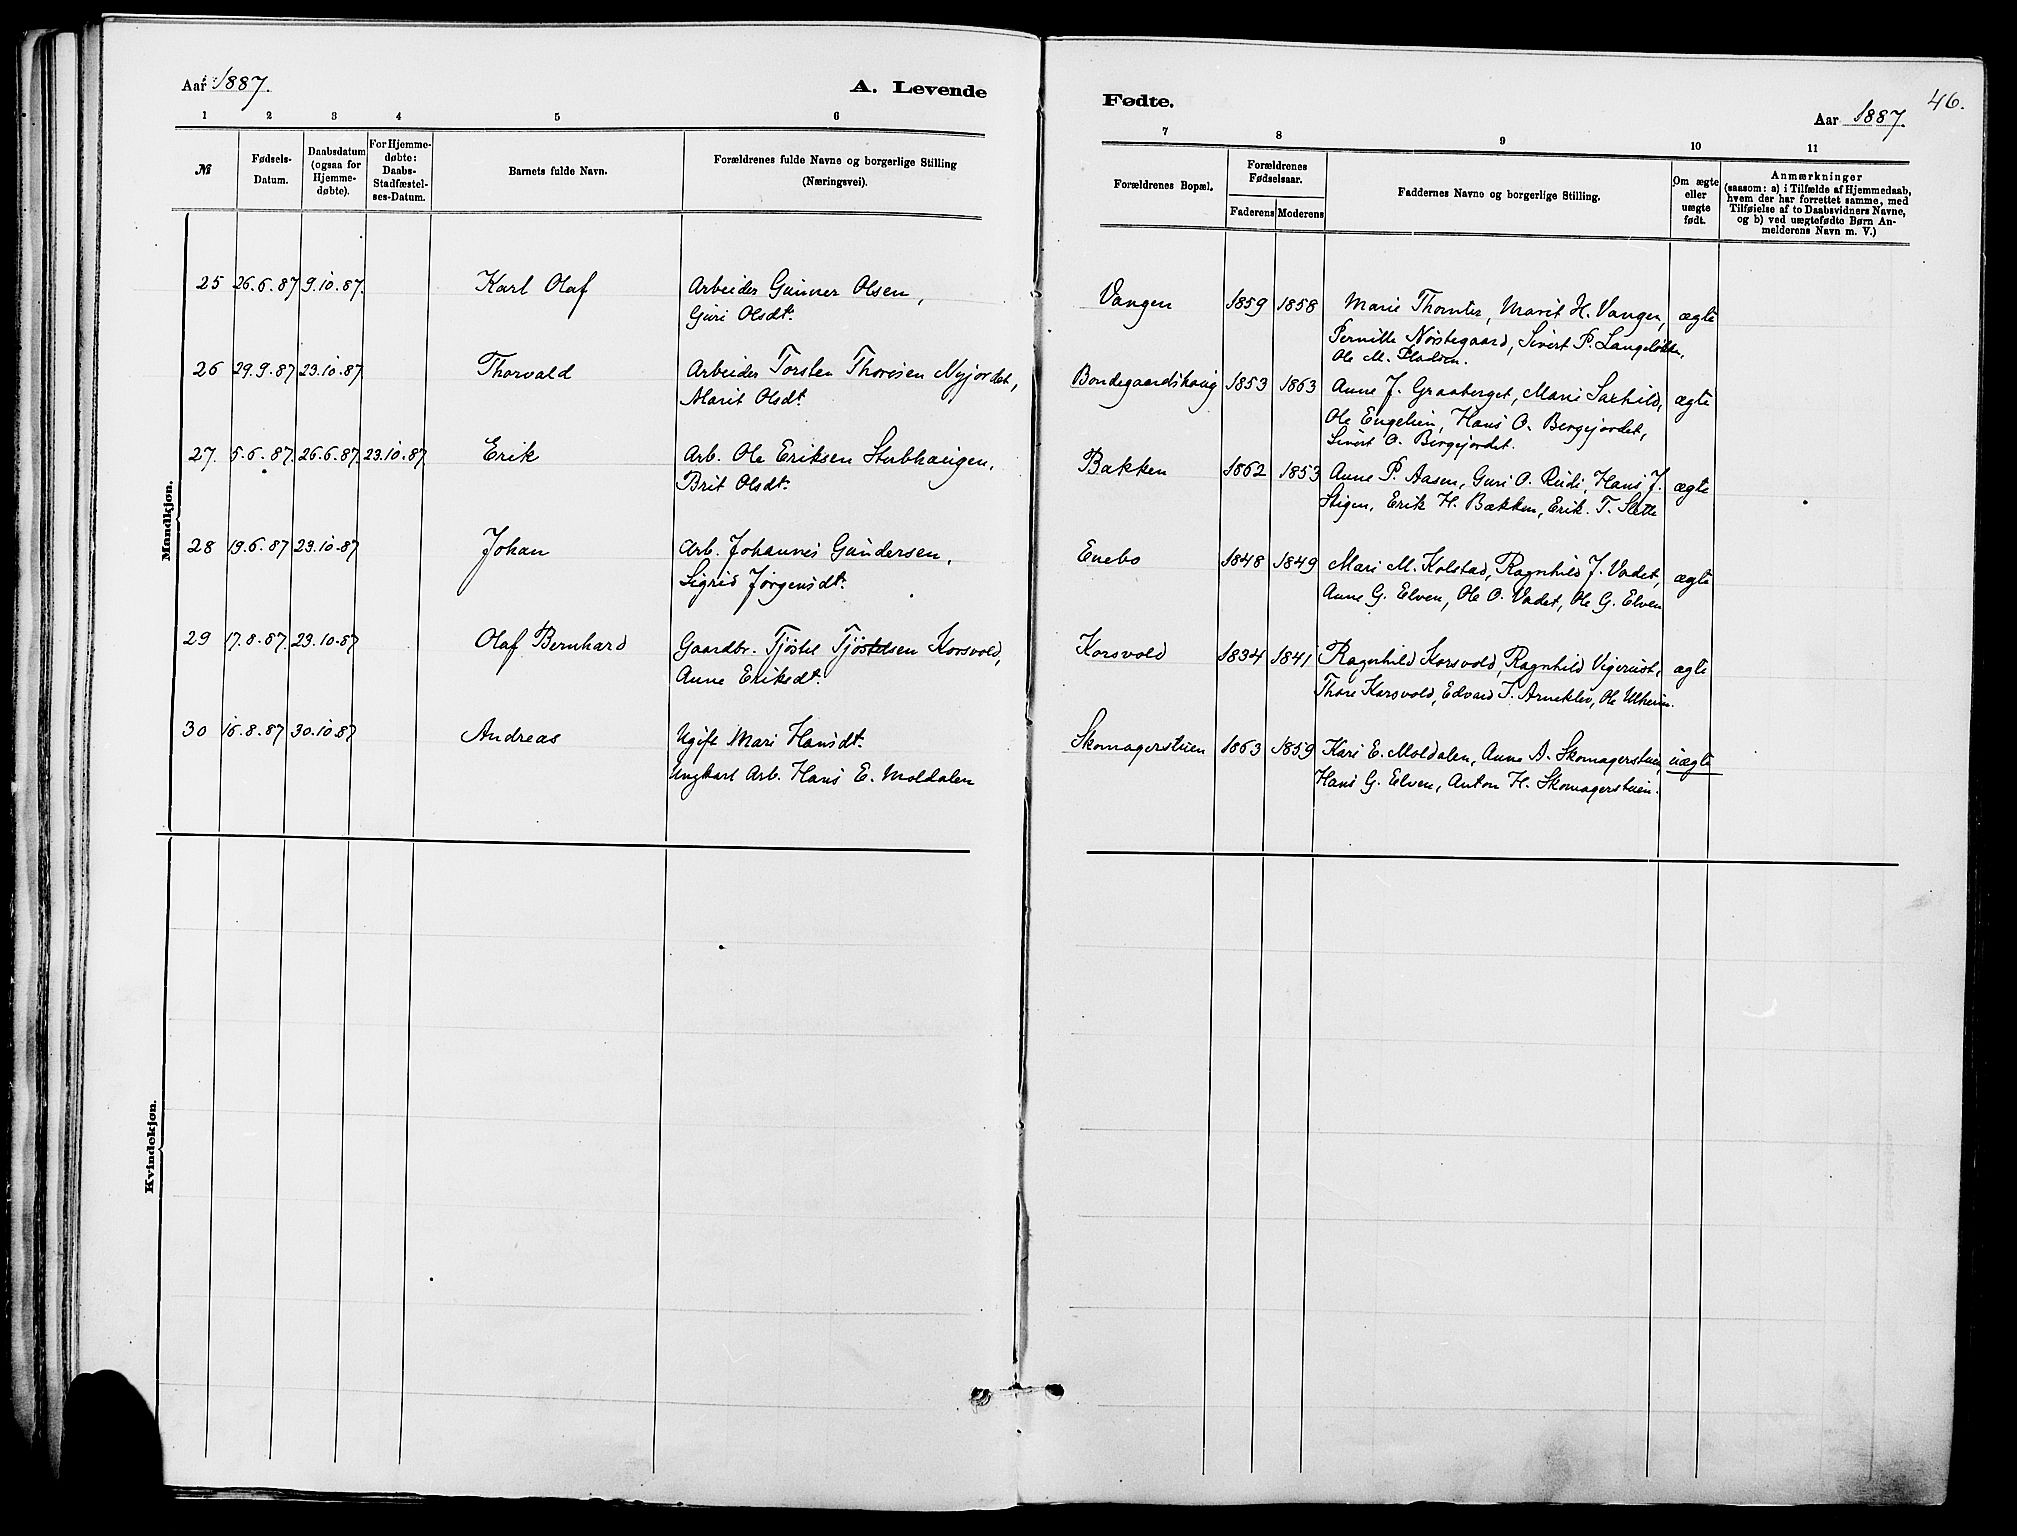 Aar 1887.
A. Levende
1 2 3 4 5 6
№
Fødsels-Datum.
Daabsdatum (ogsaa for Hjemmedøbte).
For Hjemmedøbte: Daabs-Stadfæstelses-Datum.
Barnets fulde Navn.
Forældrenes fulde Navne og borgerlige Stilling
(Næringsvei).
Mandkjøn.
25 26.6.87 9.10.87. Karl Olaf Arbeider Gunner Olsen,
Guri Olsdt.
26 29.9.87 23.10.87 Thorvald Arbeider Torsten Thoresen Nyjordet,
Marit Olsdt.
27. 5.6.87. 26.6.87. 23.10.87 Erik Arb. Ole Eriksen Stubhaugen,
Brit Olsdt.
28 19.6.87 23.10.87 Johan Arb. Johannes Gundersen,
Sigrid Jørgensdt.
29 17.8.87. 23.10.87 Olaf Bernhard Gaardbr. Tjøstel Tjøstelsen Korsvold,
Anne Eriksdt.
30 16.8.87. 30.10.87 Andreas Ugift Mari Hansdt.
Ungkarl Arb. Hans E. Moldalen
Kvindekjøn.
Fødte.
46.
Aar 1887.
7 8 9 10 11
Forældrenes Bopæl.
Forældrenes Fødselsaar.
Faderens Moderens
Faddernes Navne og borgerlige Stilling.
Om ægte eller uægte født.
Anmærkninger
(saasom: a) i Tilfælde af Hjemmedaab,
hvem der har forrettet samme, med
Tilføielse af to Daabsvidners Navne,
og b) ved uægtefødte Børn Anmelderens Navn m. V.)
Vangen 1859 1858 Marie Thomter, Marit H. Vangen, ægte
Pernille Nørstegaard, Sivert P. Langeløkke,
Ole M.
Bondegaardshaug 1853 1863 Anne J. Graaberget, Marie Saxhild, ægte
Ole Engelien, Hans O. Bergejordet,
Sivert O. Bergejordet.
Bakken 1862 1853 Anne P. Aasen, Guri O. Rudi, Hans J. ægte
Stigen, Erik H. Bækken, Erik. T. Slette
Enebo 1848 1849 Mari M. Kolstad, Ragnhild J. Vadet, ægte
Anne G. Elven, Ole O. Vadet, Ole G. Elven
Korsvold 1834 1841 Ragnhild Korsvold, Ragnhild Vigerust, ægte
Thore Korsvold, Edvard T. Arneklev, Ole Ulheim.
Skomagerstuen 1863 1859 Kari E. Moldalen, Anne A. Skomagerstuen, uægte
Hans G. Elven, Anton H. Skomagerstuen.